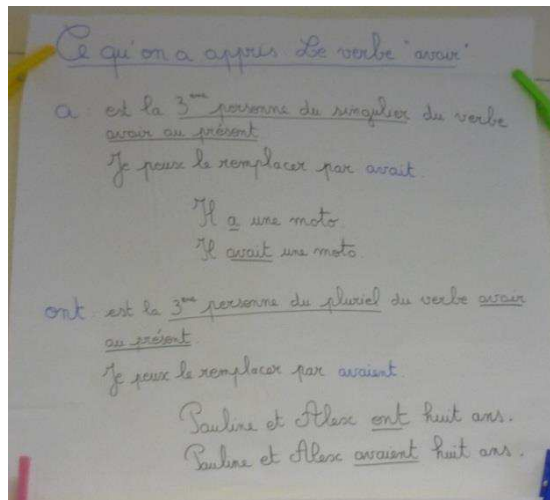 Ce qu'on a appris Le verbe "avoir"
a : est la 3ème personne du singulier du verbe
avoir au présent.
Je peux le remplacer par avait.
Il a une moto.
Il avait une moto.
ont : est la 3ème personne du pluriel du verbe avoir
au présent.
Je peux le remplacer par avaient.
Pauline et Alex ont huit ans.
Pauline et Alex avaient huit ans.